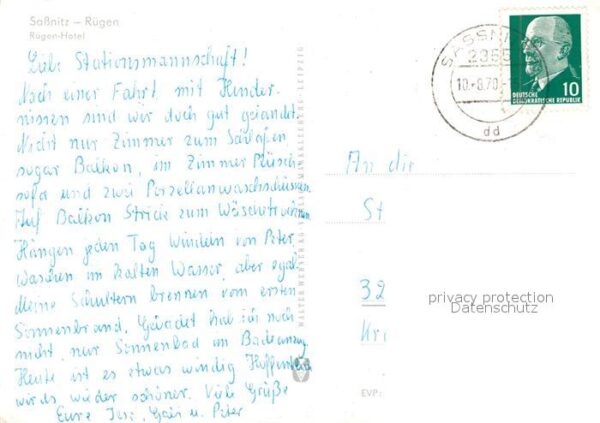 Saßnitz – Rügen
Rügen-Hotel
Liebe Stationsmannschaft!
Nach einer Fahrt mit Hinder-
nissen sind wir doch gut gelandet.
Nicht nur Zimmer zum Schlafen
sogar Balkon, im Zimmer Plüsch
sofa und zwei Porzellanwaschschüsseln
Auf Balkon Strick zum Wäschetrocknen
Hängen jeden Tag Windeln von Peter
waschen im kalten Wasser, aber egal.
Meine Schultern brennen vom ersten
Sonnenbrand. Gebadet hab ich noch
nicht, nur Sonnenbad im Badeanzug
Heute ist es etwas windig Hoffentlich
wirds wieder schöner. Viele Grüße
Eure u. Peter
SASSNITZ
2355
10.-8.70
dd
10
DEUTSCHE
DEMOKRATISCHE REPUBLIK
An die
St
32
Kri
privacy protection
Datenschutz
EVP: